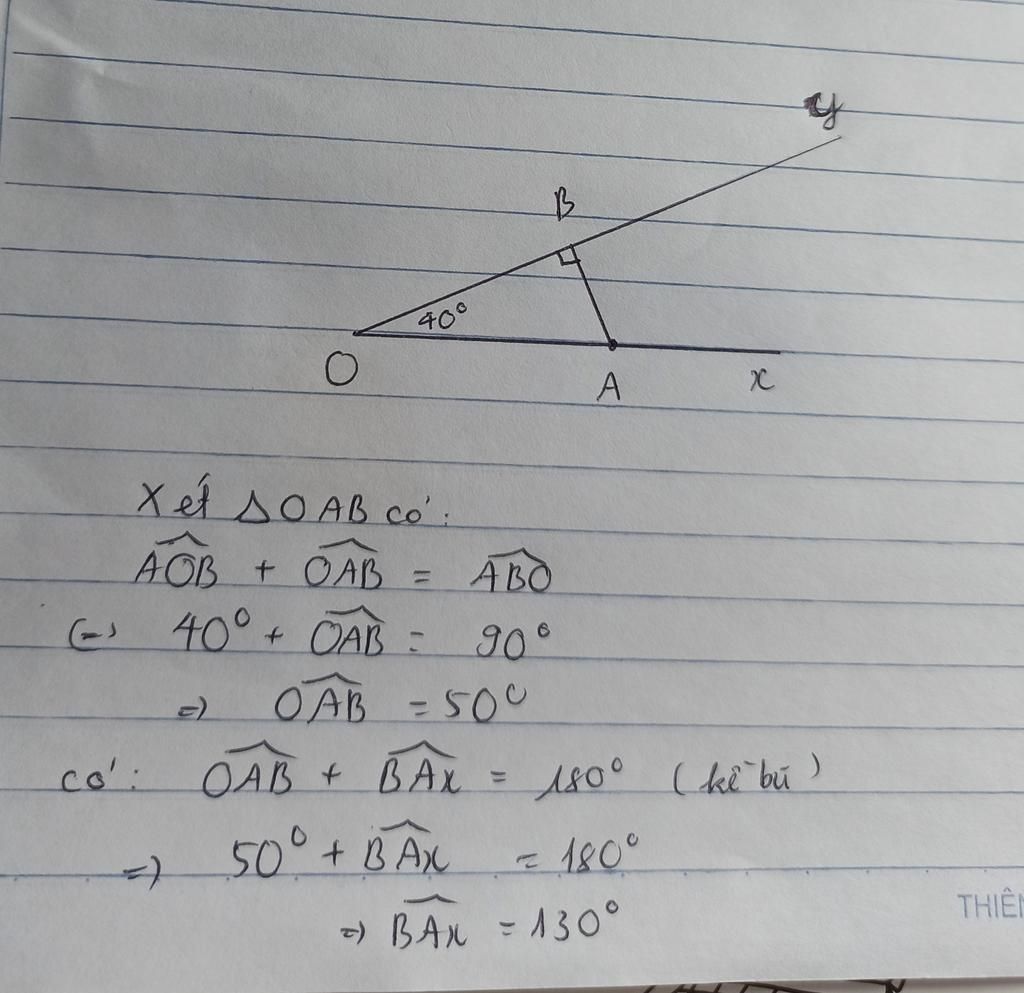 y
B
40°
O
A
x
Xét ΔOAB có:
\widehat{AOB} + \widehat{OAB} = \widehat{ABO}
(=) 40° + \widehat{OAB} = 90°
=) \widehat{OAB} = 50°
có: \widehat{OAB} + \widehat{BAx} = 180° (kề bù)
=) 50° + \widehat{BAx} = 180°
=) \widehat{BAx} = 130°
THIÊN